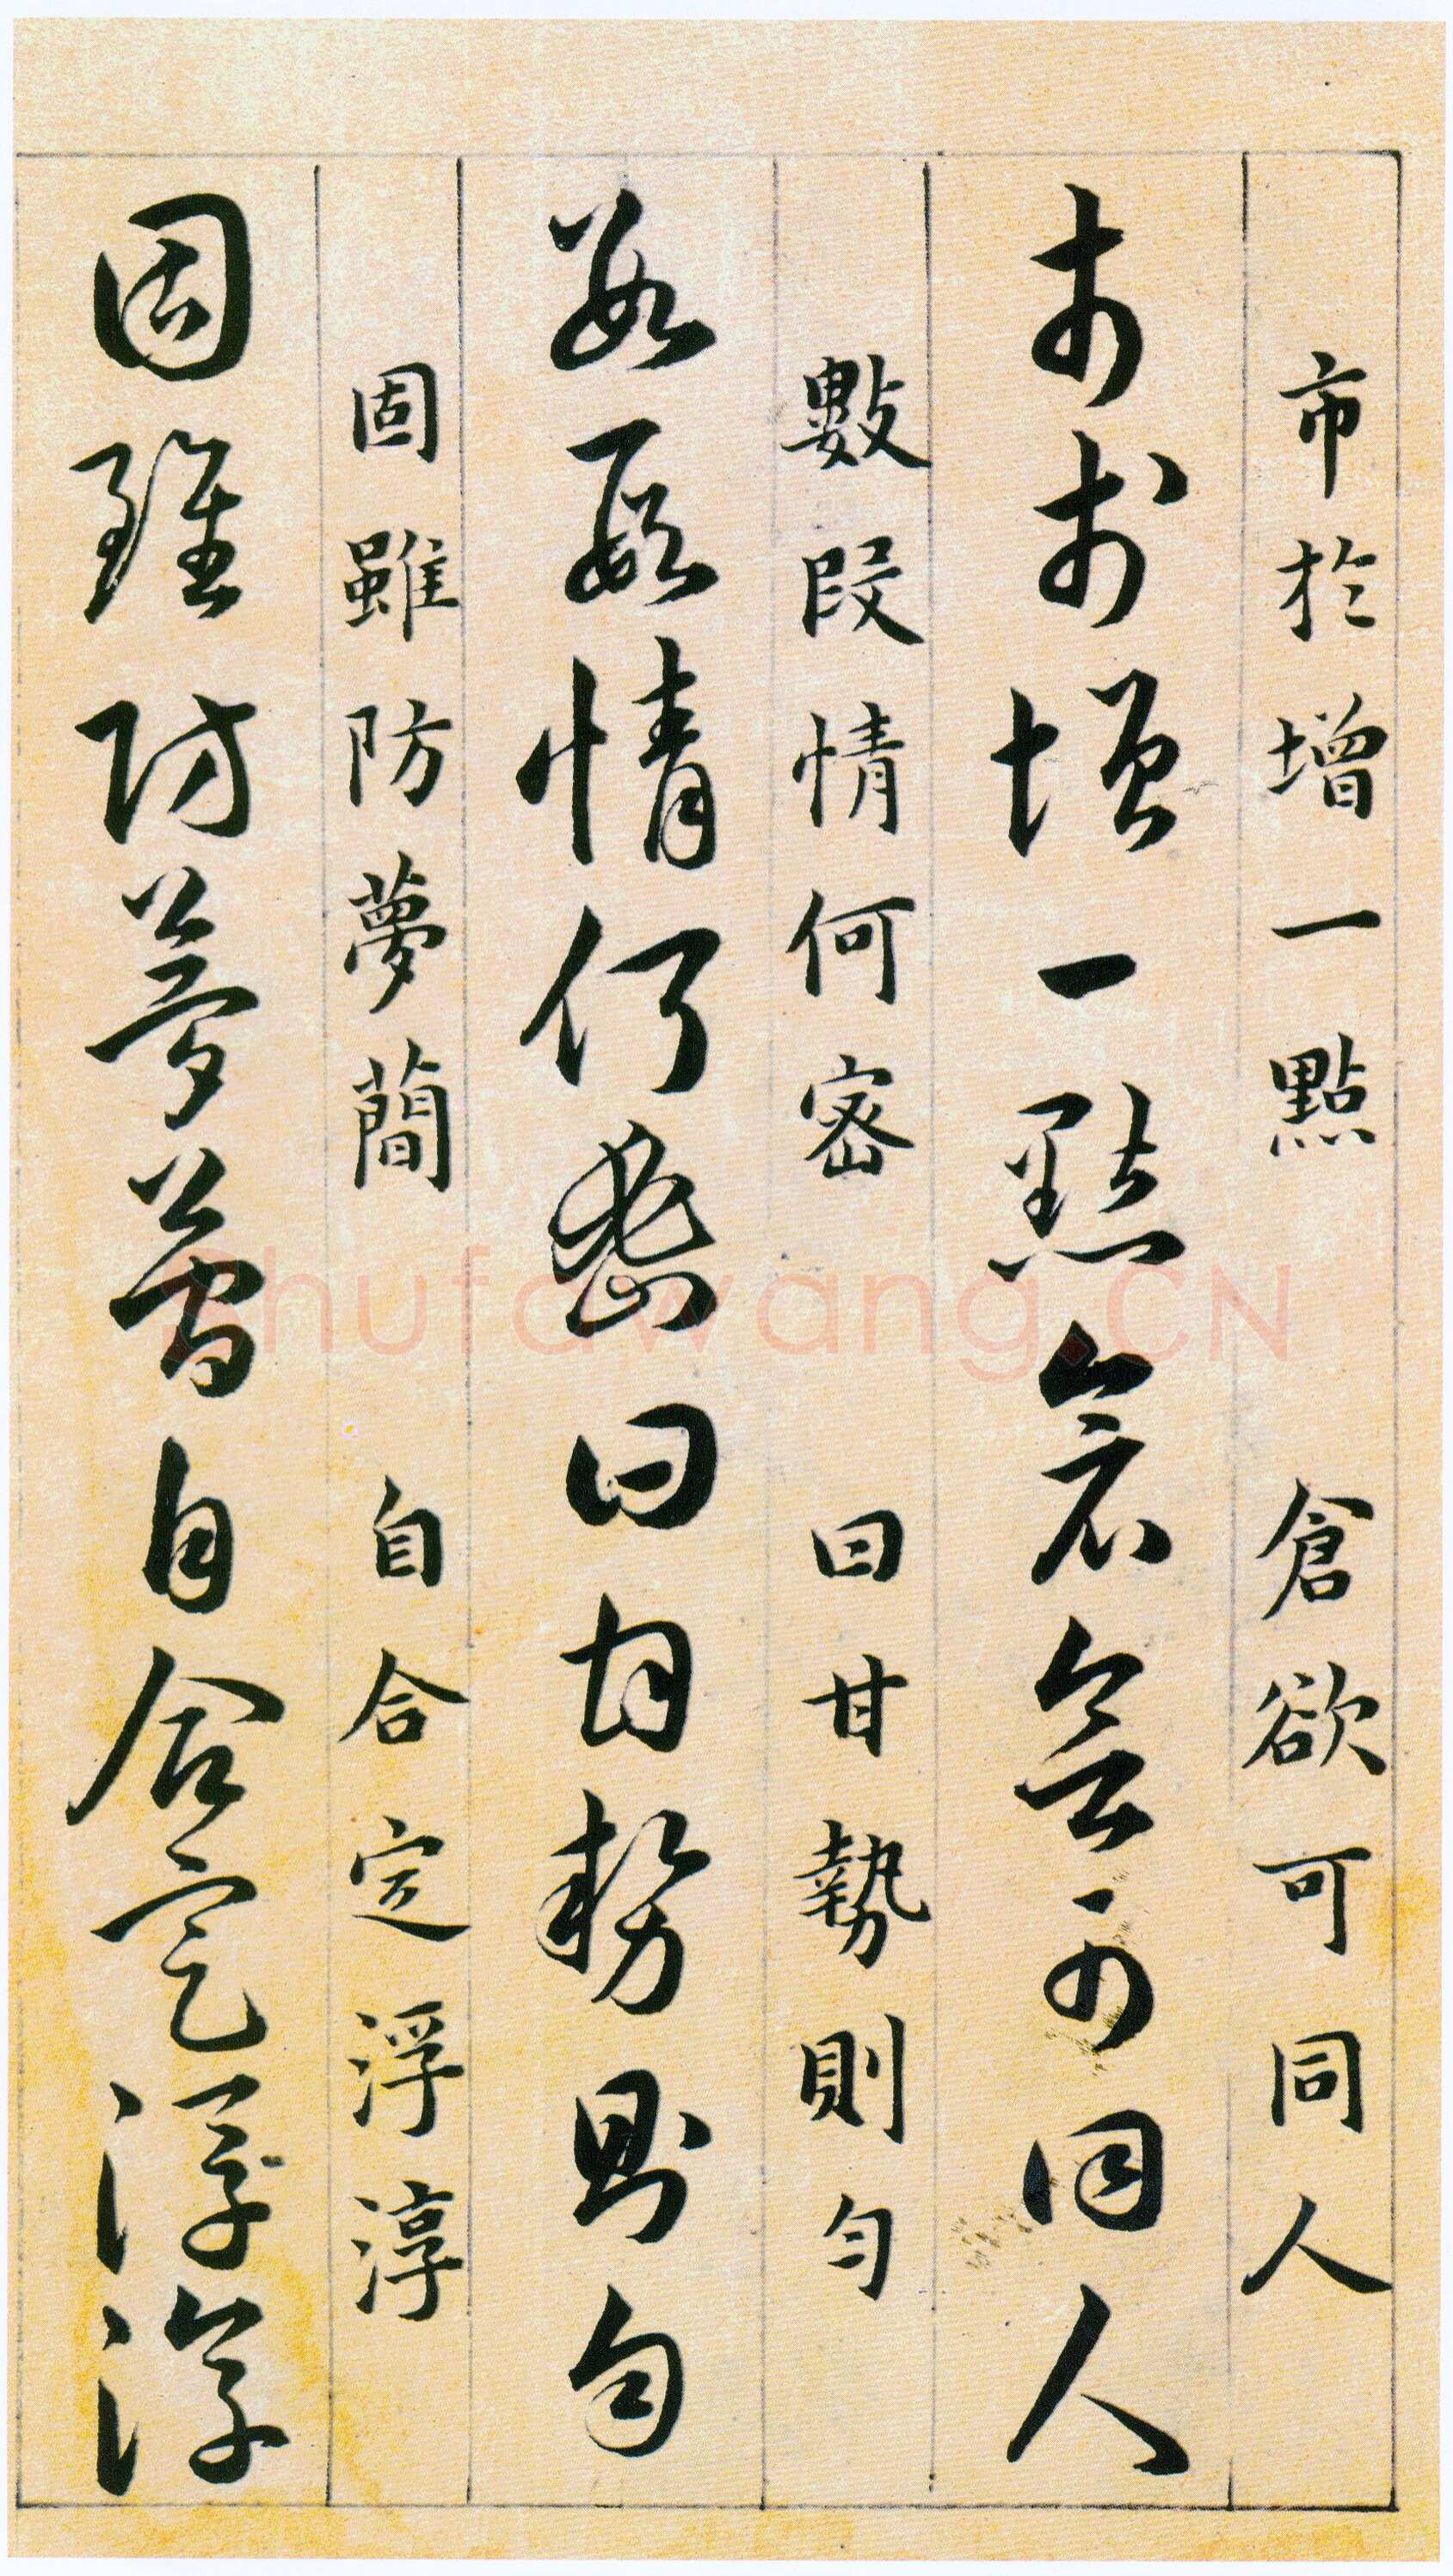 市於增一點 倉欲可同人
市於增一點倉欲可同人
數段情何密 曰甘勢則勻
數段情何密曰甘勢則勻
固雖防夢簡 自合定浮淳
固雖防夢簡自合定浮淳
shufawang.CN